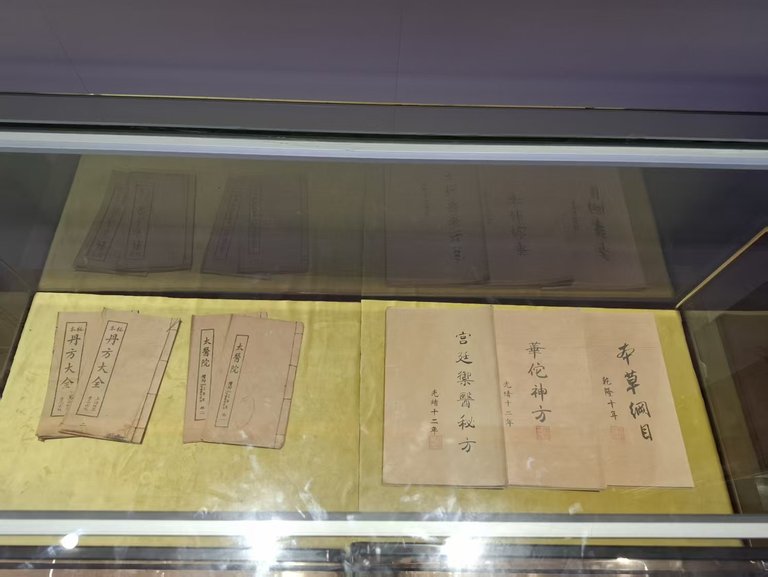 秘本
丹方大全
秘本
丹方大全
太醫院
太醫院
宮廷禦醫秘方
光绪十二年
華佗神方
光绪十二年
本草綱目
乾隆十年